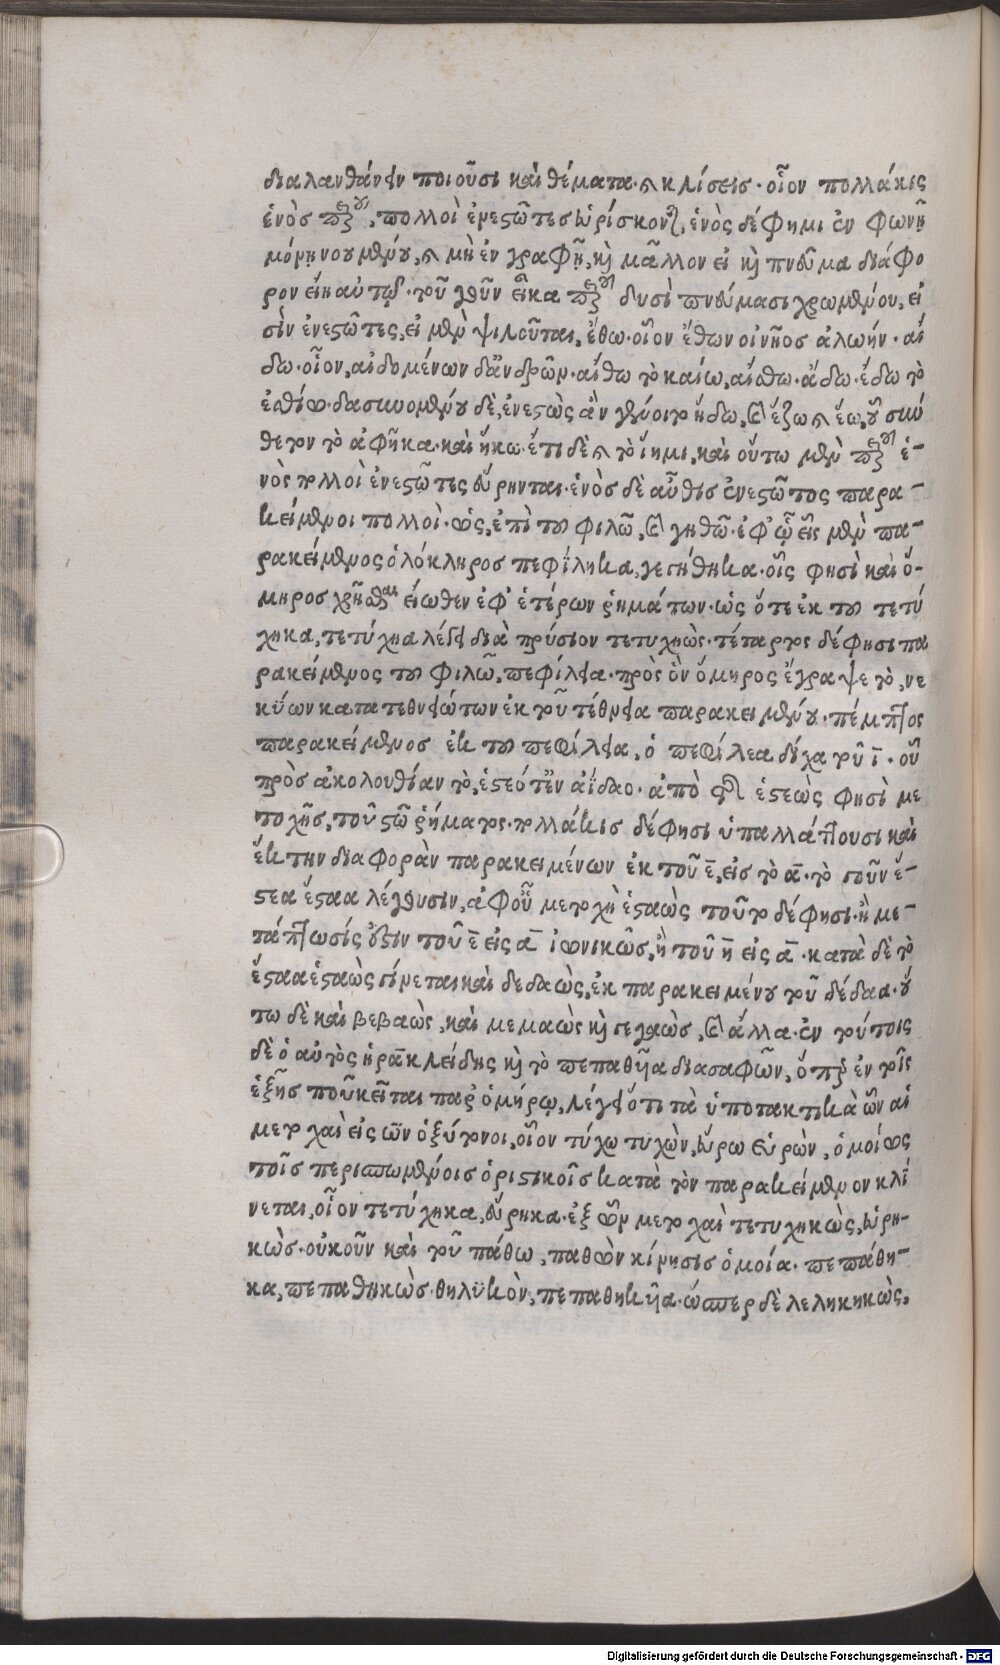 διαλανθάνειν ποιοῦσι καὶ θέματα. καὶ κλίσεις. οἷον πολλάκις
ἑνὸς πξου, πολλοὶ ἐνεστῶτες εὑρίσκονται, ἑνὸς δέ φημι ἐν φωνῇ
μόνῃ νουμένου, καὶ μὴ ἐν γραφῇ, καὶ μᾶλλον εἰ καὶ πνεῦμα διάφο
ρον εἴη αὐτῷ. τοῦ γοῦν εἷκα πξου δυσὶ πνεύμασι χρωμένου, εἰ
σὶν ἐνεστῶτες, εἰ μὲν ψιλοῦται, ἔθω. οἷον ἔθων οἰνῆος ἀλωήν. αἴ
δω. οἷον, αἰδομένων δἄνδρῶν. αἴθω τὸ καίω, αἴσθω. ἄδω. ἔδω τὸ
ἐσθίω. δασυνομένου δὲ, ἐνεστὼς ἂν γένοιτο ἥδω, καὶ ἕζω καὶ ἕω, οὗ σύν
θετον τὸ ἀφῆκα. καὶ ἥκω. ἔτι δὲ καὶ τὸ ἵημι, καὶ οὕτω μὲν πξου ἑ-
νὸς πολλοὶ ἐνεστῶτες εὕρηνται. ἑνὸς δὲ αὖθις ἐνεστῶτος παρα-
κείμενοι πολλοὶ. ὡς, ἐπὶ τοῦ φιλῶ, καὶ γηθῶ. ἐφ' ᾧ εἷς μὲν πα-
ρακείμενος ὁλόκληρος πεφίληκα, γεγήθηκα. οἷς φησὶ καὶ ὅ-
μηρος χρῆσθαι εἴωθεν ἐφ' ἑτέρων ῥημάτων. ὡς ὅτε ἐκ τοῦ τετύ
χηκα, τετύχηα λέγει διὰ πρύσιον τετυχηὼς. τέταρτος δέ φησι πα
ρακείμενος τοῦ φιλῶ, πεφίλεια. πρὸς ὃν ὅμηρος ἔγραψε τὸ, νε
κύων κατατεθνειώτων ἐκ τοῦ τέθνεια παρακειμένου. πέμπτος
παρακείμενος ἐκ τοῦ πεφίλεια, ὁ πεφίλεα δίχα τοῦ ῑ. οὗ
πρὸς ἀκολουθίαν τὸ, ἑστεότ' εἰν ἀΐδαο. ἀπὸ τῆς ἑστεὼς φησὶ με
τοχῆς, τοῦ στῶ ῥήματος. πολλάκις δέ φησι ὑπαλλάττουσι καὶ
ἐκ τὴν διαφορὰν παρακειμένων ἐκ τοῦ ε̄, εἰς τὸ ᾱ. τὸ γοῦν ἕ-
στεα ἕσταα λέγουσιν, ἀφ' οὗ μετοχὴ ἑσταὼς τοῦτο δέ φησι. ἢ με-
τάπτωσίς ἐστιν τοῦ ε̄ εἰς ᾱ ἰωνικῶς, ἢ τοῦ η̄ εἰς ᾱ. κατὰ δὲ τὸ
ἕσταα ἑσταὼς γίνεται καὶ δεδαὼς, ἐκ παρακειμένου τοῦ δέδαα. οὕ
τω δὲ καὶ βεβαὼς, καὶ μεμαὼς καὶ γεγαὼς, καὶ ἄλλα. ἐν τούτοις
δὲ ὁ αὐτὸς ἡρακλείδης καὶ τὸ πεπαθυῖα διασαφῶν, ὅπερ ἐν τοῖς
ἑξῆς ποῦ κεῖται παρ' ὁμήρῳ, λέγει ὅτι τὰ ὑποτακτικὰ ὧν αἱ
μετοχαὶ εἰς ων ὀξύτονοι, οἷον τύχω τυχὼν, εὕρω εὑρὼν, ὁμοίως
τοῖς περισπωμένοις ὁριστικοῖς κατὰ τὸν παρακείμενον κλί
νεται, οἷον τετύχηκα, εὕρηκα. ἐξ ὧν μετοχαὶ τετυχηκὼς, εὑρη-
κὼς. οὐκοῦν καὶ τοῦ πάθω, παθὼν κίνησις ὁμοία. πεπάθη-
κα, πεπαθηκὼς. θηλυκὸν, πεπαθηκυῖα. ὥσπερ δὲ λεληκηκὼς,
Digitalisierung gefördert durch die Deutsche Forschungsgemeinschaft - DFG